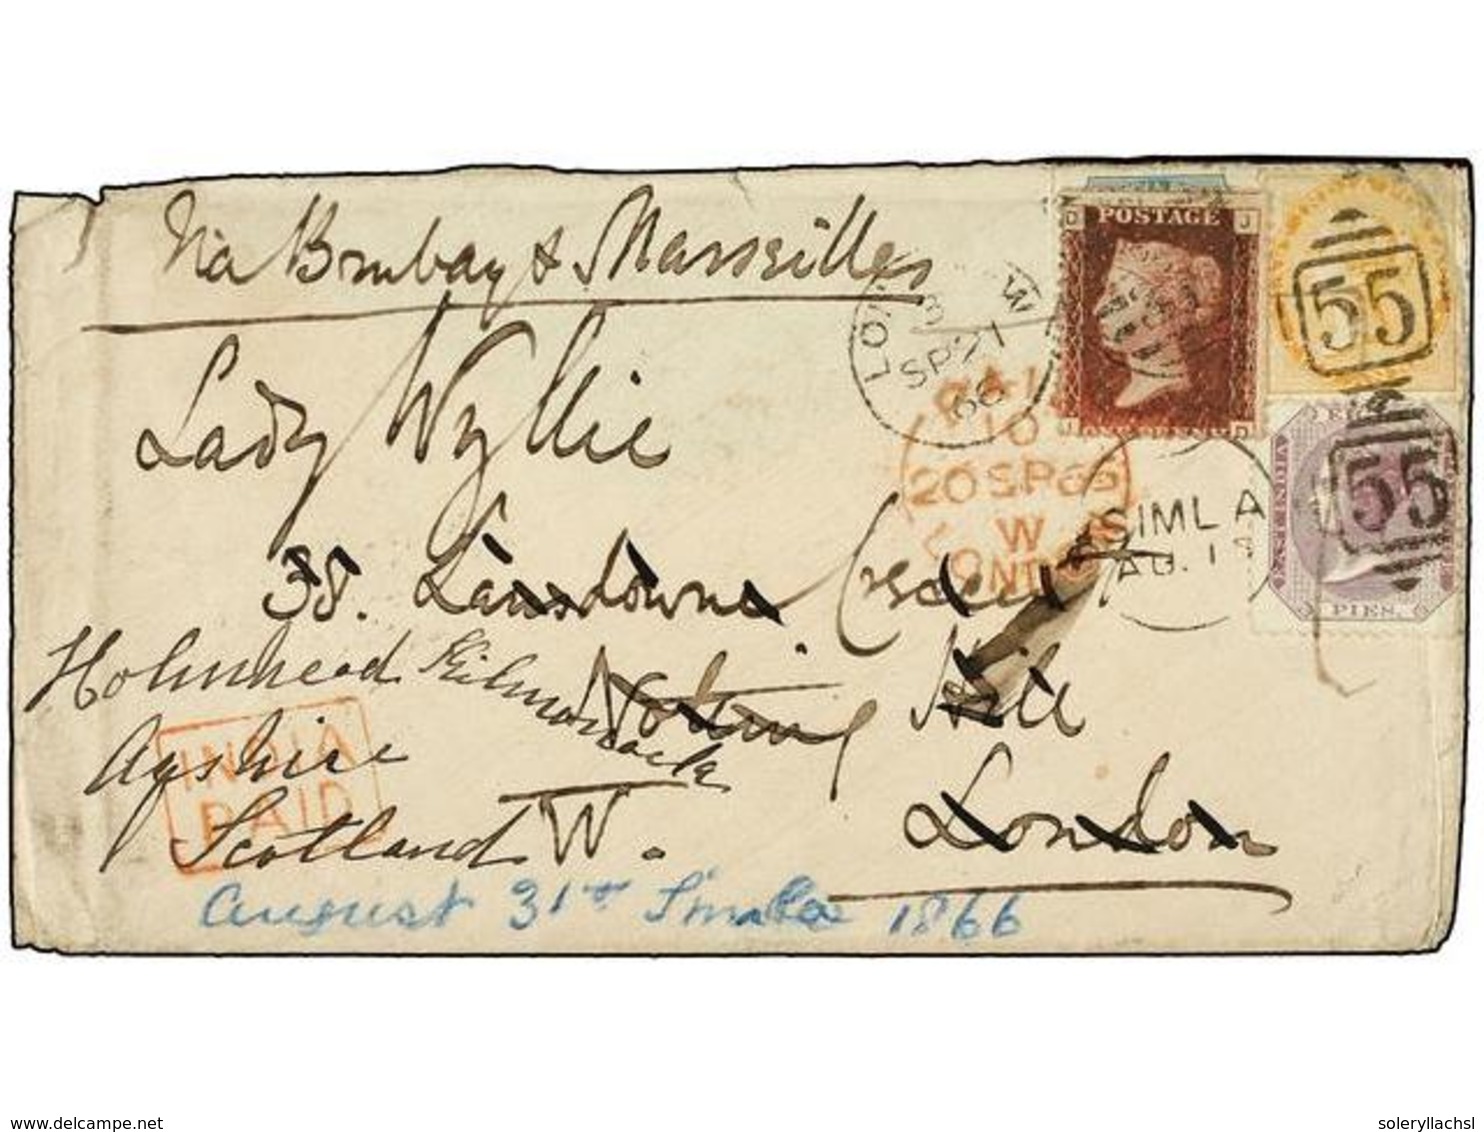 Via Bombay & Marseilles
Lady Wyllie
38. Lansdowne Crescent
Notting Hill
London
W.
Holmhead Kilmarnock
Ayrshire
Scotland
INDIA
PAID
August 31st Simla 1866
POSTAGE
D J
J D
LON
W
SP21
66
PAID
10
20SP66
W
LONDON
SIMLA
AU.
55
55
EAST INDIA
PIES.
www.delcampe.net
soleryllachsl